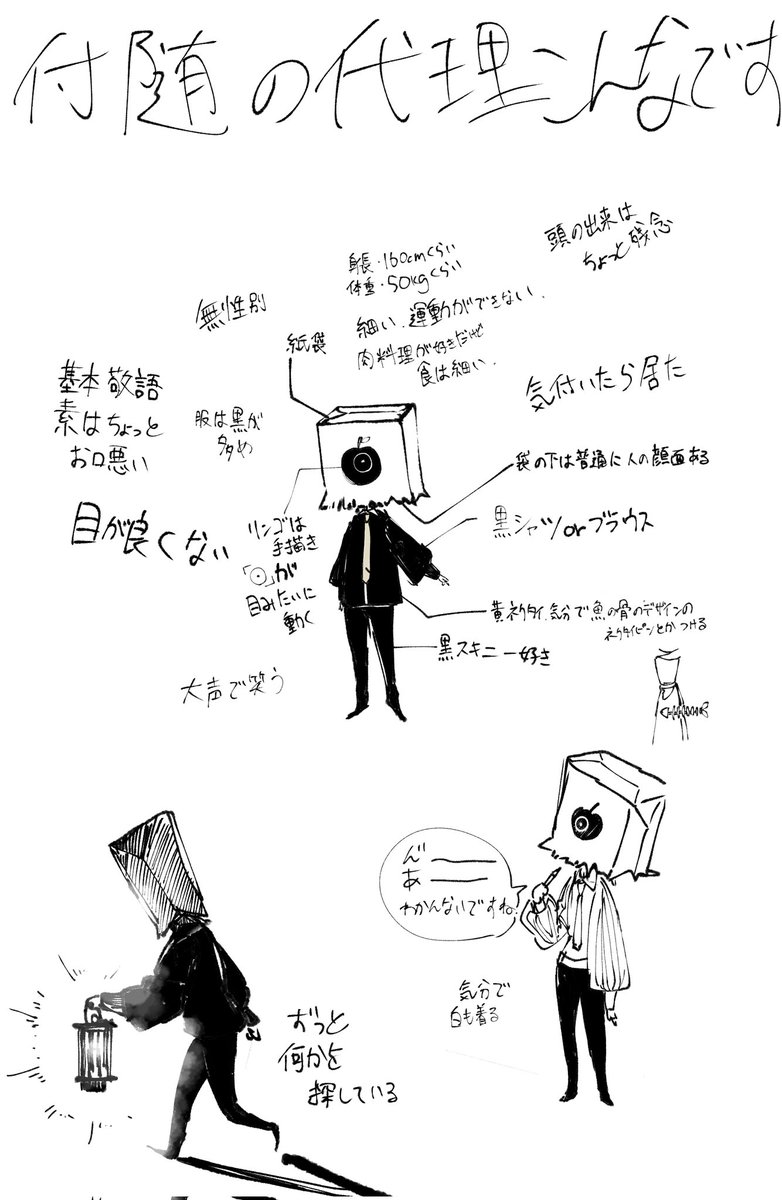 付随の代理こんなです
頭の出来は
ちょっと残念
身長・160cmくらい
体重・50kgくらい
細い.運動ができない.
肉料理が好きだけど
食は細い.
無性別
紙袋
気付いたら居た
基本敬語
素はちょっと
お口悪い
服は黒が
多め
袋の下は普通に人の顔面ある
目が良くない
リンゴは
手描き
「⊙」が
目みたいに
動く
黒シャツorブラウス
黄ネクタイ.気分で魚の骨のデザインの
ネクタイピンとかつける
黒スキニー好き
大声で笑う
ん゛――
あ――
わかんないですね.
気分で
白も着る
ずっと
何かを
探している